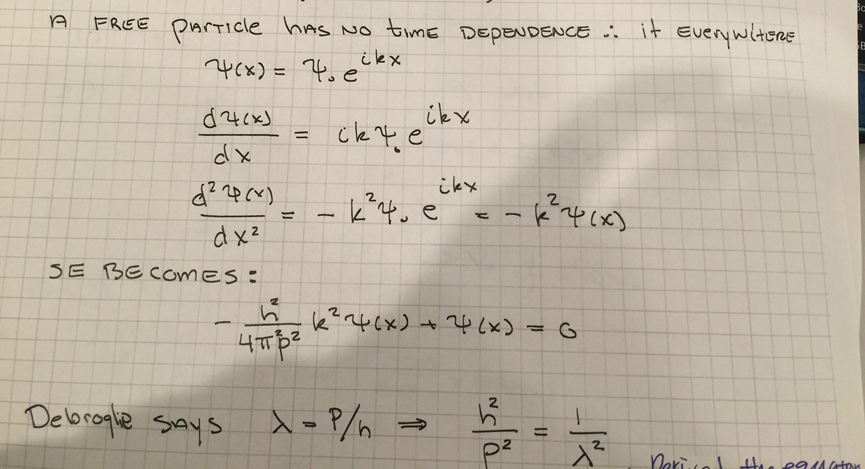 A FREE PARTICLE HAS NO TIME DEPENDENCE ∴ it EVERYWHERE
Ψ(x) = Ψ₀ e^{ikx}
dΨ(x)/dx = ikΨ₀ e^{ikx}
d²Ψ(x)/dx² = - k²Ψ₀ e^{ikx} = - k²Ψ(x)
SE BECOMES:
- h²/4π²p² k²Ψ(x) + Ψ(x) = 0
Debroglie SAYS λ = P/h ⇒ h²/P² = 1/λ²